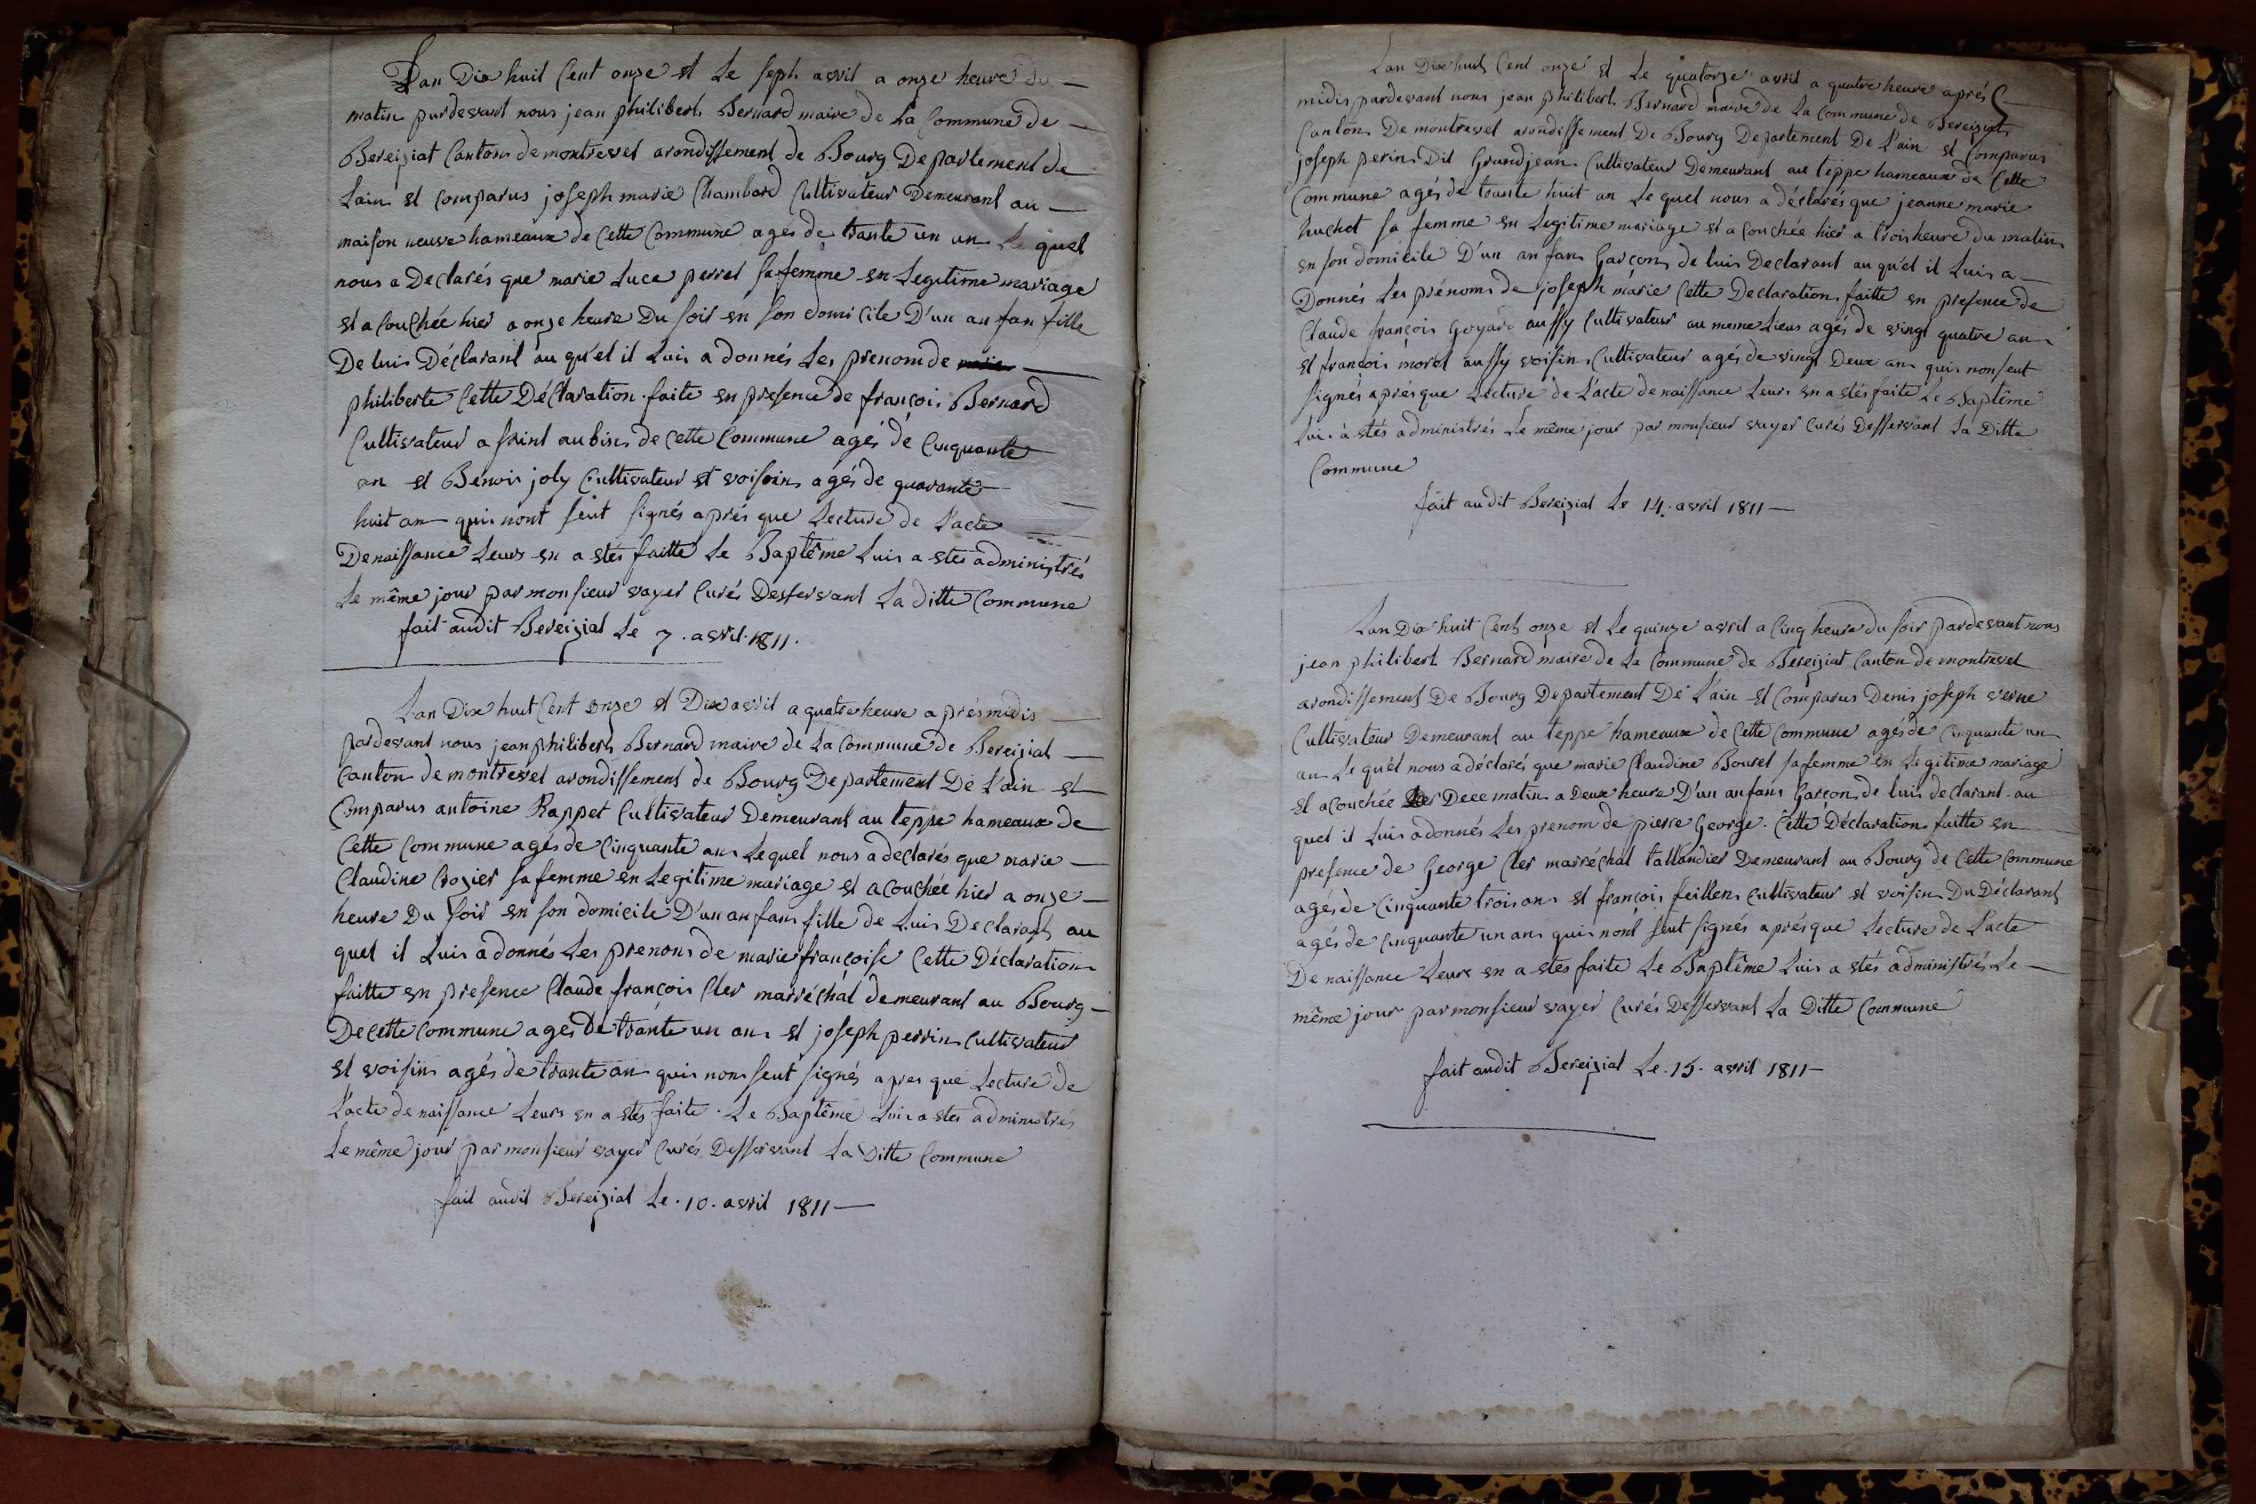 Lan Dix huit Cent onze et Le sept avril a onze heure du
matin pardevant nous jean philibert Bernard maire de La Commune de
Bereiziat Canton de montrevel arondissement de Bourg Departement de
Lain et comparus joseph marie Chambard Cultivateur Demeurant au
maison neuve hameaux de Cette Commune agés de trante un an Le quel
nous a Declarés que marie Luce perret sa femme en Legitime mariage
et a Couchée hier a onze heure Du soir en son domicile D'un an fan fille
De luis Déclarant au qu'el il Luis a donnés Les prenom de
philiberte Cette Déclaration faite en presence de françois Bernard
Cultivateur a saint aubin de Cette Commune agés de Cinquante
an et Benoir joly Cultivateur et voisoin agés de quarante
huit an qui n'ont seut signés aprés que Lecture de L'acte
De naissance Leurs en a etés faitte Le Baptême Luis a etes administrés
Le même jour par monsieur vayer Curés Desservant La ditte Commune
fait audit Bereiziat Le 7. avril. 1811.
Lan Dix huit Cent onze et Dix avril a quatre heure a prés midis
pardevant nous jean philibert Bernard maire de La Commune de Bereiziat
Canton de montrevel arondissement de Bourg Departement De L'ain et
Comparus antoine Rappet Cultivateur Demeurant au teppe hameaux de
Cette Commune agés de Cinquante an Le quel nous a declarés que marie
Claudine Crozier sa femme en Legitime mariage et a couchée hier a onze
heure Du soir en son domicile D'un an fan fille de Luis Declarant au
quel il Luis a donnés Les prenons de marie françoise Cette Déclaration
faitte en presence Claude françois Cler marréchal demeurant au Bourg
De cette Commune agés De trante un an et joseph perrin Cultivateur
et voisin agés de trante an qui non seut signés apres que Lecture de
L'acte de naissance Leurs en a etés faite. Le Baptême Luis a etes administrés
Le même jour par monsieur vayer Curés Desservant La ditte Commune
fait audit Bereiziat Le. 10. avril 1811
Lan Dix huit Cent onze et Le quatorze avril a quatre heure aprés
midis pardevant nous jean philibert Bernard maire de La Commune de Bereiziat
Canton De montrevel arondissement De Bourg Departement De L'ain et Comparus
joseph perin Dit Grandjean Cultivateur Demeurant au teppe hameaux de Cette
Commune agés de trante huit an Le quel nous a déclarés que jeanne marie
huchet sa femme en Legitime mariage et a couchée hier a trois heure du matin
en son domicile D'un an fan Garçon de luis Declarant au qu'el il Luis a
Donnés Les prénoms de joseph marie Cette Declaration faitte en presence de
Claude françois Goyard aussy Cultivateur au meme Lieux agés de vingt quatre an
et françois morel aussy voisin Cultivateur agés de vingt Deux an qui non seut
signés aprés que Lecture de L'acte de naissance Leurs en a etés faite Le Baptême
Luis a etés administrés Le même jour par monsieur vayer Curés Desservant La Ditte
Commune
fait audit Bereiziat Le 14. avril 1811
Lan Dix huit Cent onze et Le quinze avril a Cinq heure du soir pardevant nous
jean philibert Bernard maire de La Commune de Bereiziat Canton de montrevel
arondissement De Bourg Departement De L'ain et Comparus Denis joseph verne
Cultivateur Demeurant au teppe hameaux de Cette Commune agés de Cinquante un
an Le qu'el nous a déclarés que marie Claudine Bouvet sa femme en Legitime mariage
et a couchée matin a Deux heure D'un an fans Garçon de luis declarant au
quel il Luis a donnés Les prenom de pierre George. Cette Déclaration faitte en
presence de George Cler marréchal tallandier Demeurant au Bourg de Cette Commune
agés de Cinquante trois an et françois feillen Cultivateur et voisin Du Déclarant
agés de cinquante un an qui nont seut signés aprés que Lecture de L'acte
De naissance Leurs en a etes faite Le Baptême Luis a etés administrés Le
même jour par monsieur vayer Curés Desservant La Ditte Commune
fait audit Bereiziat Le. 15. avril 1811